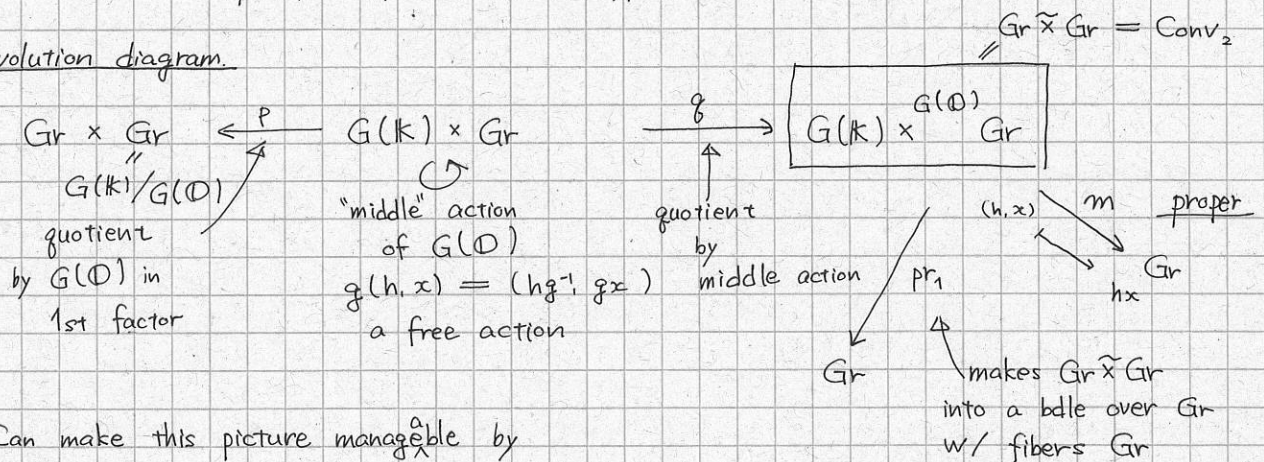 Gr ×̃ Gr = Conv₂
volution diagram.
Gr × Gr ←p G(𝕂) × Gr q→ G(𝕂) ×^{G(𝕆)} Gr
=
G(𝕂)/G(𝕆)
quotient
by G(𝕆) in
1st factor
"middle" action
of G(𝕆)
g(h, x) = (hg⁻¹, gx)
a free action
quotient
by
middle action
pr₁
Gr
(h, x) m proper
Gr
hx
makes Gr ×̃ Gr
into a bdle over Gr
w/ fibers Gr
Can make this picture manageable by